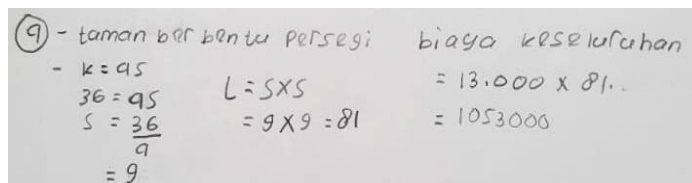 9 - taman berbentu persegi
- k = 4s
36 = 4s
s = 36/4
= 9
L = s x s
= 9 x 9 = 81
biaya keseluruhan
= 13.000 x 81..
= 1053000